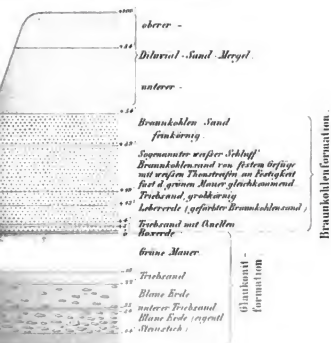 oberer -
Diluvial - Sand - Mergel.
unterer -
Braunkohlen Sand
feinkörnig.
Sogenannter weißer Schluff
Braunkohlensand von festem Gefüge
mit weißen Thonstreifen an Festigkeit
fast d. grünen Mauer gleichkommend
Triebsand, grobkörnig
Lebererde (gefärbter Braunkohlensand)
Triebsand mit Quellen
Grüne Mauer
Triebsand
Blaue Erde
unterer Triebsand
Blaue Erde (eigentl
Steinstich)
Braunkohlenformation
Glaukonit-
formation